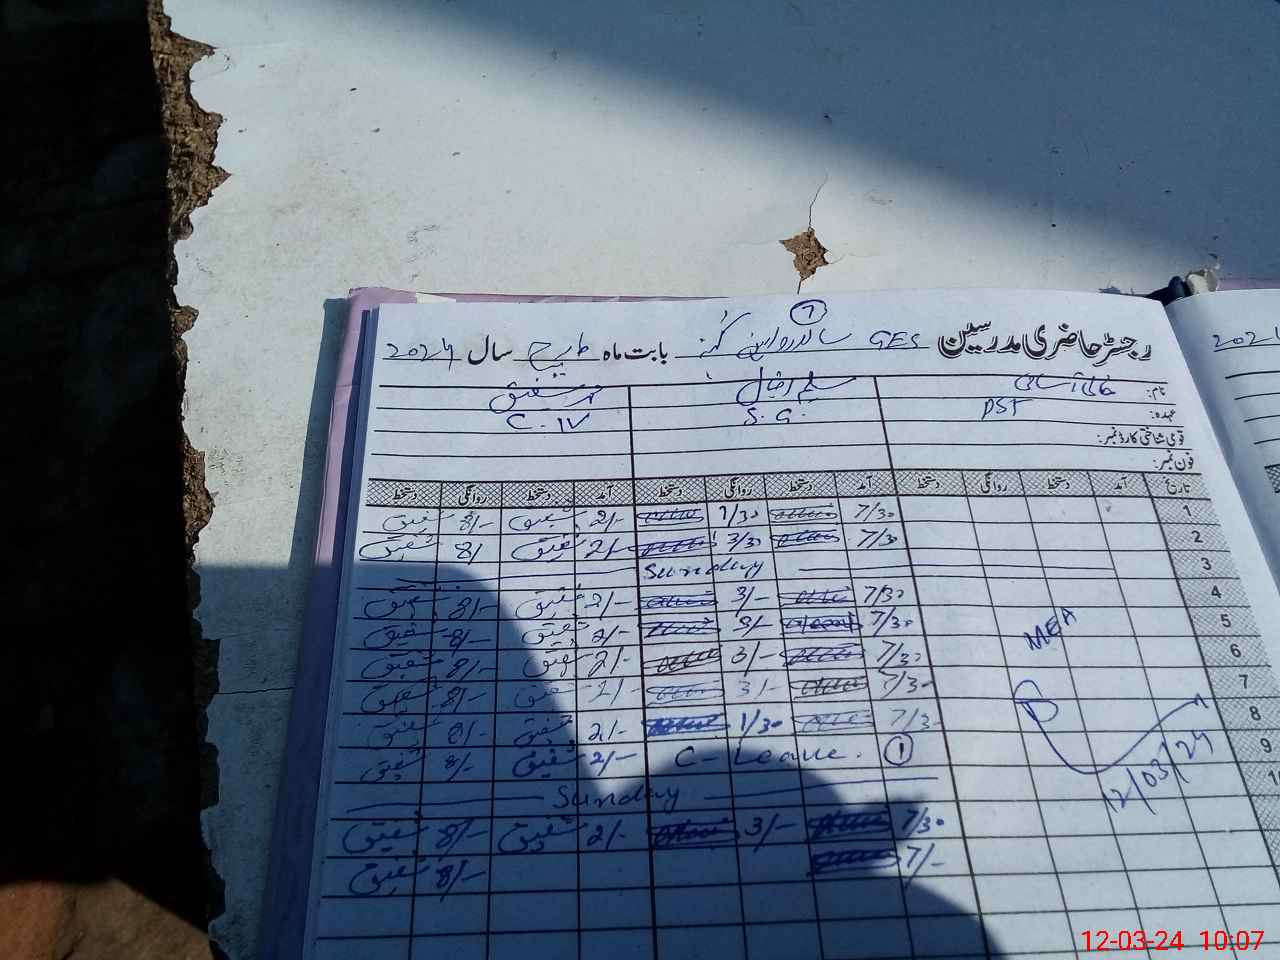 7
رجسٹر حاضری مدرسین GES بابت ماہ مارچ سال 2024
نام: خالی آسامی سلیم اقبال محمد شفیق
عہدہ: PST S.G. C.IV
قومی شناختی کارڈ نمبر:
فون نمبر:
تاریخ آمد دستخط روانگی دستخط آمد دستخط روانگی دستخط آمد دستخط روانگی دستخط
1 7/30 1/30 2/- شفیق 8/- شفیق
2 7/30 3/30 2/- شفیق 8/ شفیق
3 Sunday
4 7/30 3/- 2/- شفیق 8/- شفیق
5 7/30 3/- 2/- شفیق 8/- شفیق
6 7/30 3/- 2/- شفیق 8/- شفیق
7 7/30 3/- 2/- شفیق 8/- شفیق
8 7/30 1/30 2/- شفیق 8/- شفیق
9 C-Leave. 1 2/- شفیق 8/- شفیق
10 Sunday
7/30 3/- 2/- شفیق 8/- شفیق
7/- 8/- شفیق
MEA
12/03/24
202
12-03-24 10:07